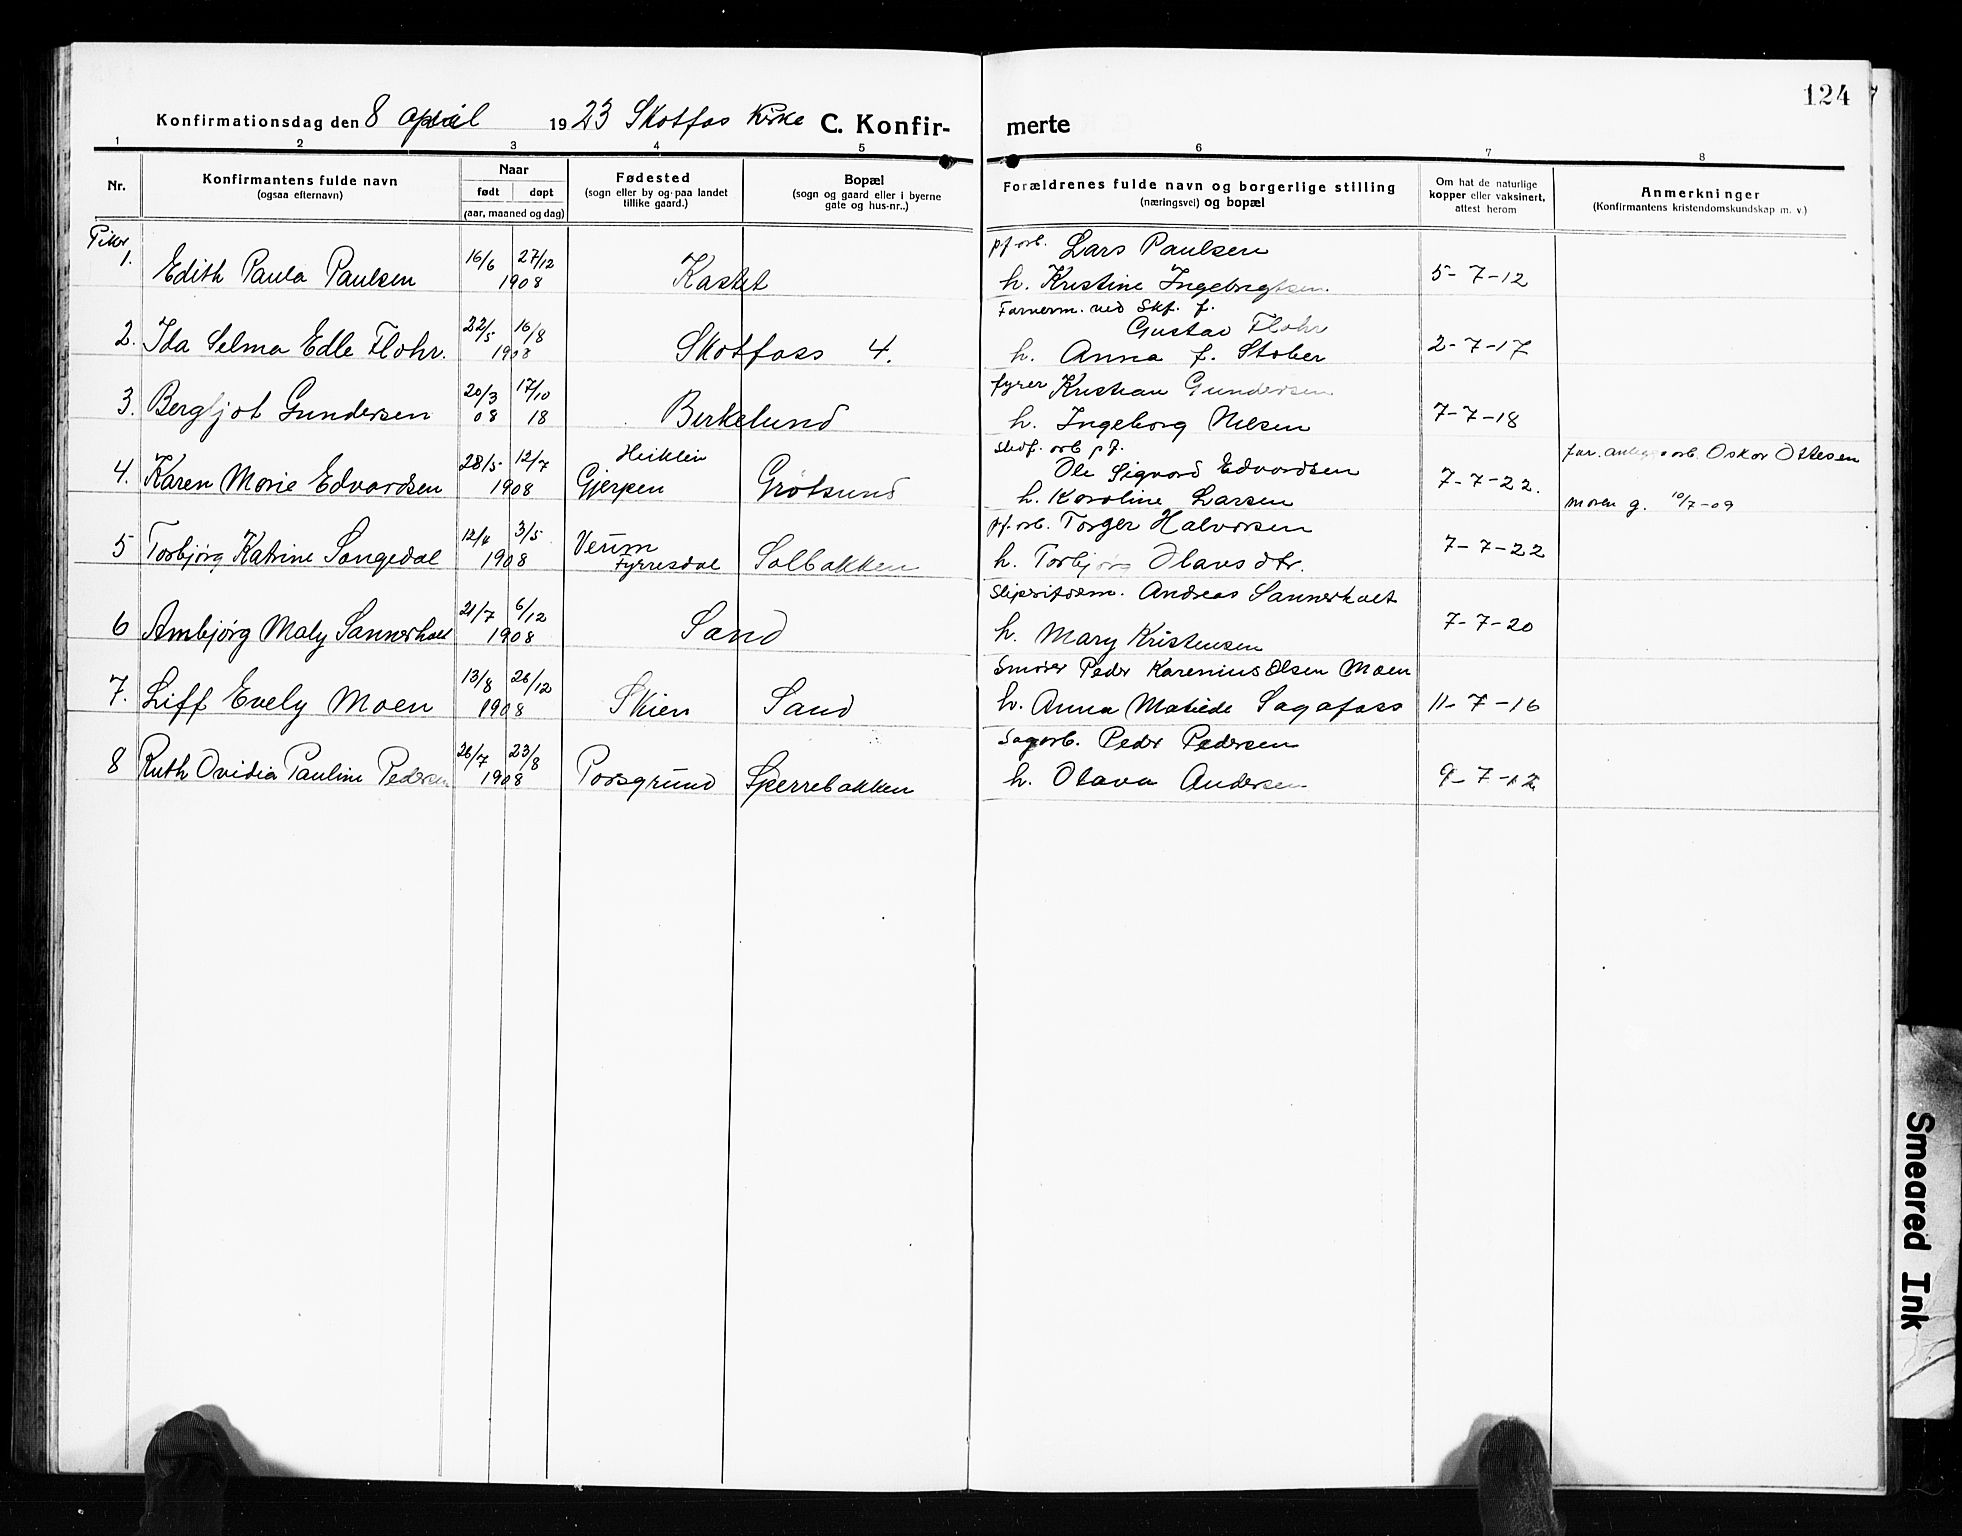 124
Konfirmationsdag den 8 april 1923 Skotfos Kirke C. Konfir-
merte
1 2 3 4 5 6 7 8
Nr.
Konfirmantens fulde navn
(ogsaa efternavn)
Naar
født døpt
(aar, maaned og dag)
Fødested
(sogn eller by og paa landet
tillike gaard.)
Bopæl
(sogn og gaard eller i byerne
gate og hus-nr..)
Forældrenes fulde navn og borgerlige stilling
(næringsvei) og bopæl
Om hat de naturlige
kopper eller vaksinert,
attest herom
Anmerkninger
(Konfirmantens kristendomskundskap m. v.)
Piker
1. Edith Paula Paulsen 16/6 27/12 1908 Kastet
pf. arb. Lars Paulsen
h. Kristine Ingebrigtsen 5-7-12
2. Ida Selma Edle Flohr. 22/5 16/8 1908 Skotfoss 4.
Formerm. ved Skf. f.
Gustav Flohr
h. Anna f. Stober 2-7-17
3. Bergljot Gundersen 20/3 08 17/10 18 Birkelund
fyrer Kristian Gundersen
h. Ingeborg Nilsen 7-7-18
4. Karen Marie Edvardsen 28/5 12/7 1908 Gjerpen Grøtsund
Stedf. arb pf.
Ole Sigvard Edvardsen
h. Karoline Larsen 7-7-22.
far. arb. Oskar Ottesen
moren g. 10/7-09
5 Torbjørg Katrine Songedal 12/4 3/5 1908 Fyrresdal Solbakken
pf. arb. Torger Halvorsen
h. Torbjørg Olavsdtr. 7-7-22
6 Ambjørg Maly Sannerholt 21/7 6/12 1908 Sand
Sliperiform. Andreas Sannerholt
h. Mary Kristensen 7-7-20
7. Liff Evely Moen 13/8 26/12 1908 Skien Sand
Smører Peder Karenius Olsen Moen
h. Anna Matilde Sagafoss 11-7-16
8 Ruth Ovidia Pauline Pedersen 26/7 23/8 1908 Porsgrund Sperrebakken
Sagarb. Peder Pedersen
h. Olava Andersen 9-7-12
Smeared Ink